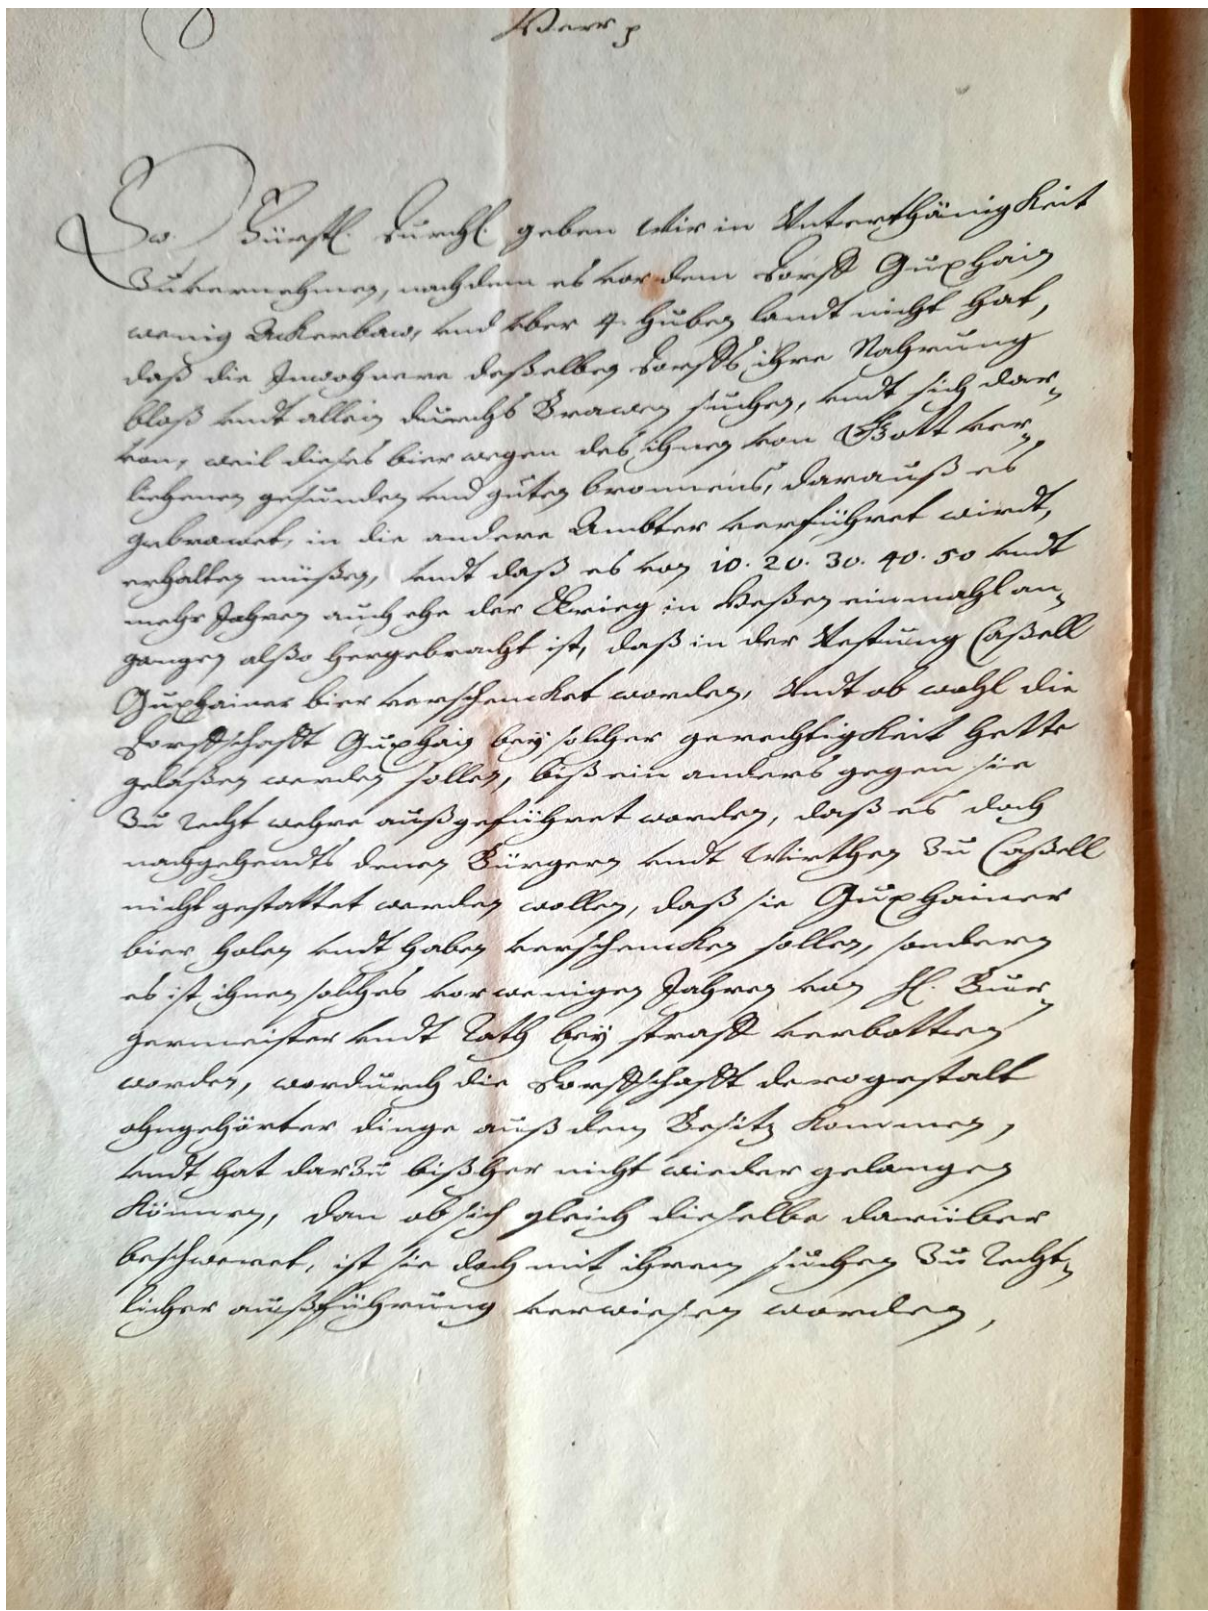 Herr p
Ew. Fürstl. Durchl. geben Wir in Unterthänigkeit
Zuvernehmen, nachdem es vor dem Dorff Guxhain
wenig Ackerbaw, vnd vber 4. Huben landt nicht hat,
daß die Inwohnere deßelben Dorffs ihre Nahrung
bloß vndt allein durchs Brawen suchen, vndt sich dar„
von, weil dieses bier wegen des ihnen von Gott ver„
liehenen gesunden vnd guten bronnens, darauß es
gebrawet, in die andere Ambter verführet wirdt,
erhalten müßen, vndt daß es von 10. 20. 30. 40. 50 vndt
mehr Jahren auch ehe der Krieg in Heßen einmahl an„
gangen alßo hergebracht ist, daß in der Vestung Caßell
Guxhainer bier verschencket worden, Vndt ob wohl die
Dorffschafft Guxhain bey solcher gerechtigkeit hette
gelaßen werden sollen, biß ein anders gegen sie
Zu recht wehre außgeführet worden, daß es doch
nachgehendts denen Bürgern vndt Wirthen Zu Caßell
nicht gestattet werden wollen, daß sie Guxhainer
bier holen vndt haben verschencken sollen, sondern
es ist ihnen solches vor wenigen Jahren von H. Bur„
germeister vndt Rath bey straff verbotten
worden, wordurch die Dorffschafft derogestalt
ohngehörter dinge auß dem Besitz kommen,
vndt hat darzu bißher nicht wieder gelangen
können, dan ob sich gleich dieselbe darüber
beschweret, ist sie doch mit ihrem suchen Zu recht„
licher außführung verwiesen worden,